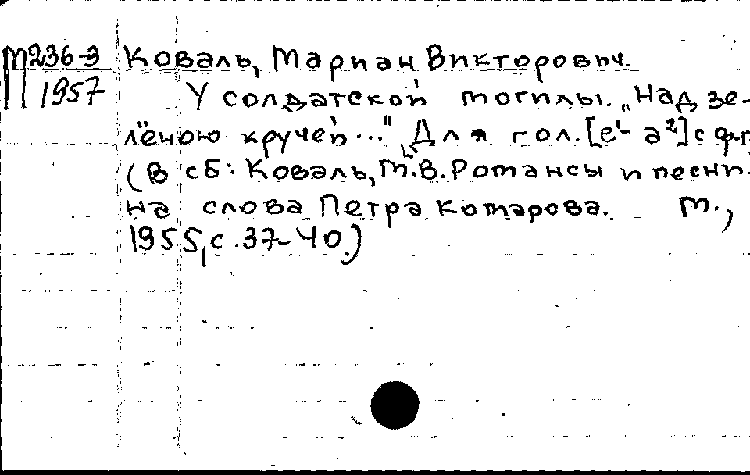 М236-3 Коваль, Мариан Викторович.
1957 У солдатской могилы. „Над зе-
лёною кручей..." Для гол. [е¹- а²] с ф-п
(В сб: Коваль, М.В. Романсы и песни
на слова Петра Комарова. М.,
1955, с. 37-40.)